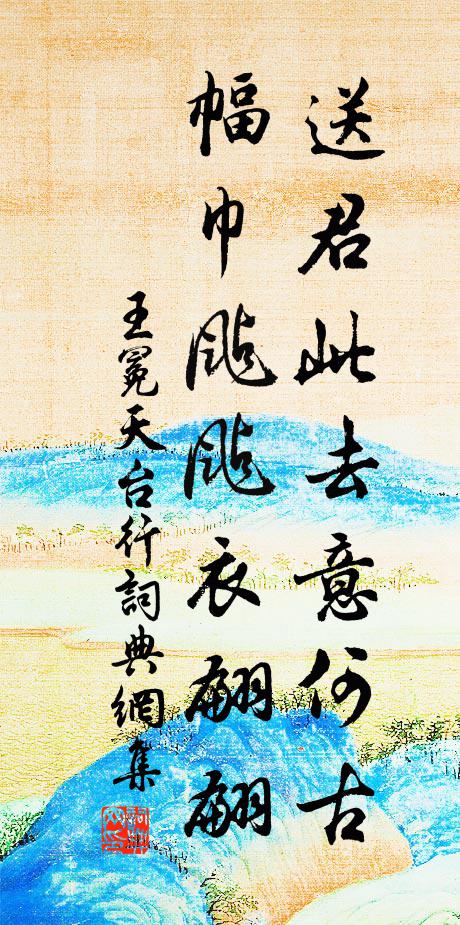 送君此去意何古
幅巾颭颭衣翩翩
王冕天台行詞典網集